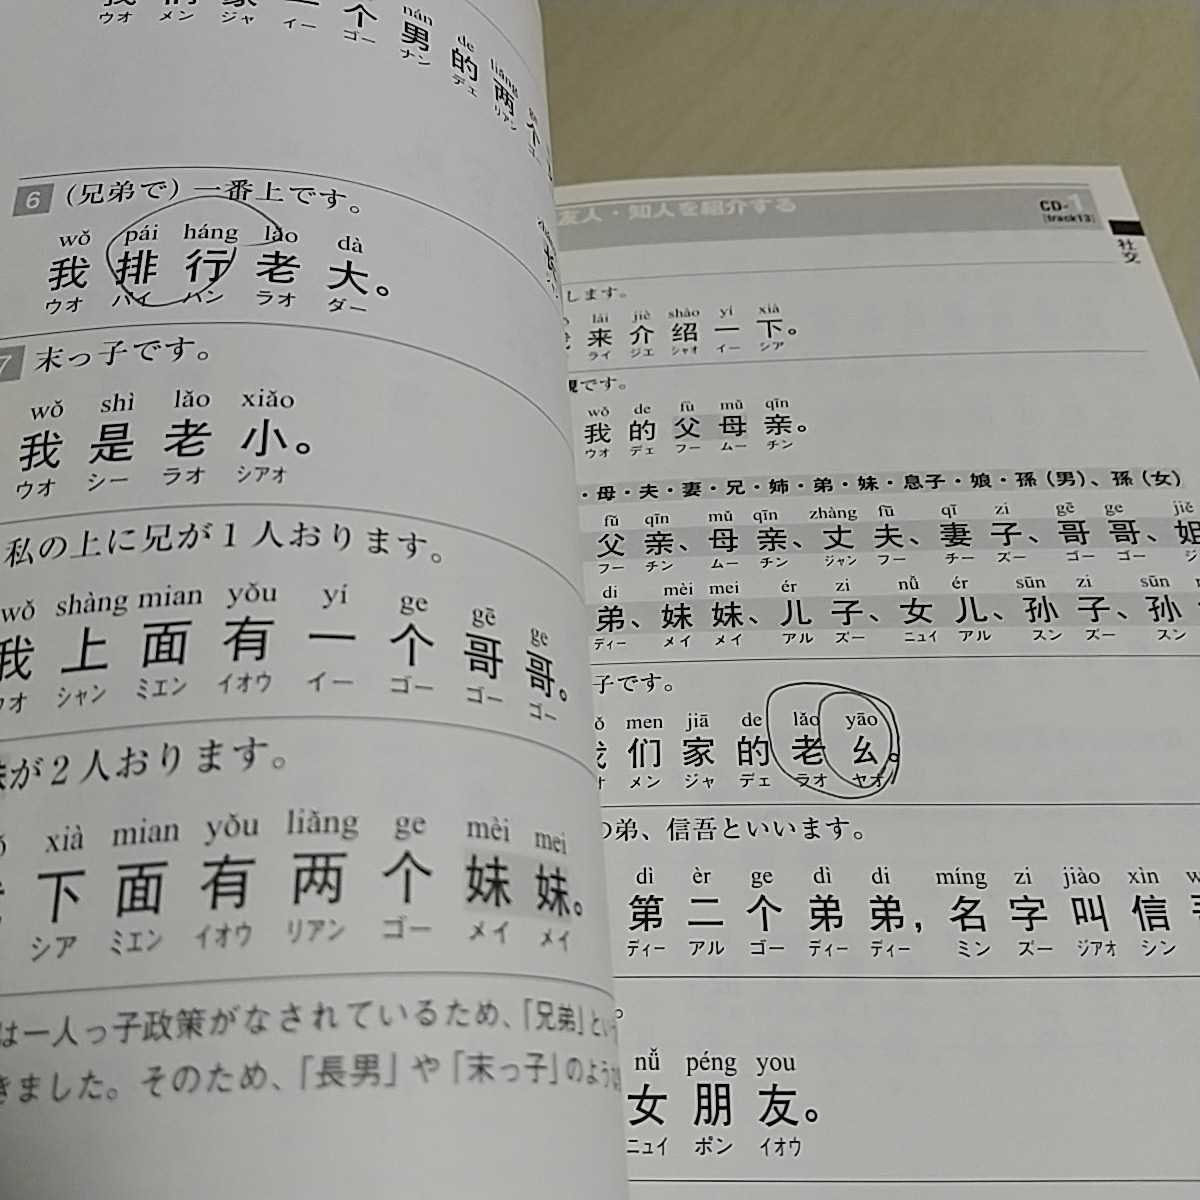 nán de liǎng
个 男 的 两 个
ウオ メン ジャ イー ゴー ナン デェ リアン ゴー
6 (兄弟で)一番上です。
wǒ pái háng lǎo dà
我 排 行 老 大。
ウオ パイ ハン ラオ ダー
7 末っ子です。
wǒ shì lǎo xiǎo
我 是 老 小。
ウオ シー ラオ シアオ
私の上に兄が1人おります。
wǒ shàng mian yǒu yí ge gē ge
我 上 面 有 一 个 哥 哥。
ウオ シャン ミエン イオウ イー ゴー ゴー ゴー
が2人おります。
xià mian yǒu liǎng ge mèi mei
下 面 有 两 个 妹 妹。
シア ミエン イオウ リアン ゴー メイ メイ
は一人っ子政策がなされているため、「兄弟」とい
きました。そのため、「長男」や「末っ子」のような
友人・知人を紹介する
CD-1
[track13]
社交
します。
lái jiè shào yí xià
来 介 绍 一 下。
ライ ジエ シャオ イー シア
親です。
wǒ de fù mǔ qīn
我 的 父 母 亲。
ウオ デェ フー ムー チン
・母・夫・妻・兄・姉・弟・妹・息子・娘・孫(男)、孫(女)
fù qīn mǔ qīn zhàng fū qī zi gē ge jiě
父 亲、母 亲、丈 夫、妻 子、哥 哥、姐
フー チン ムー チン ジャン フー チー ズー ゴー ゴー
di mèi mei ér zi nǚ ér sūn zi sūn
弟、妹 妹、儿 子、女 儿、孙 子、孙
ディー メイ メイ アル ズー ニュイ アル スン ズー スン
子です。
men jiā de lǎo yāo
们 家 的 老 幺。
メン ジャ デェ ラオ ヤオ
の弟、信吾といいます。
dì èr ge dì di míng zi jiào xìn
第 二 个 弟 弟, 名 字 叫 信
ディー アル ゴー ディー ディー ミン ズー ジアオ シン
。
nǚ péng you
女 朋 友。
ニュイ ポン イオウ